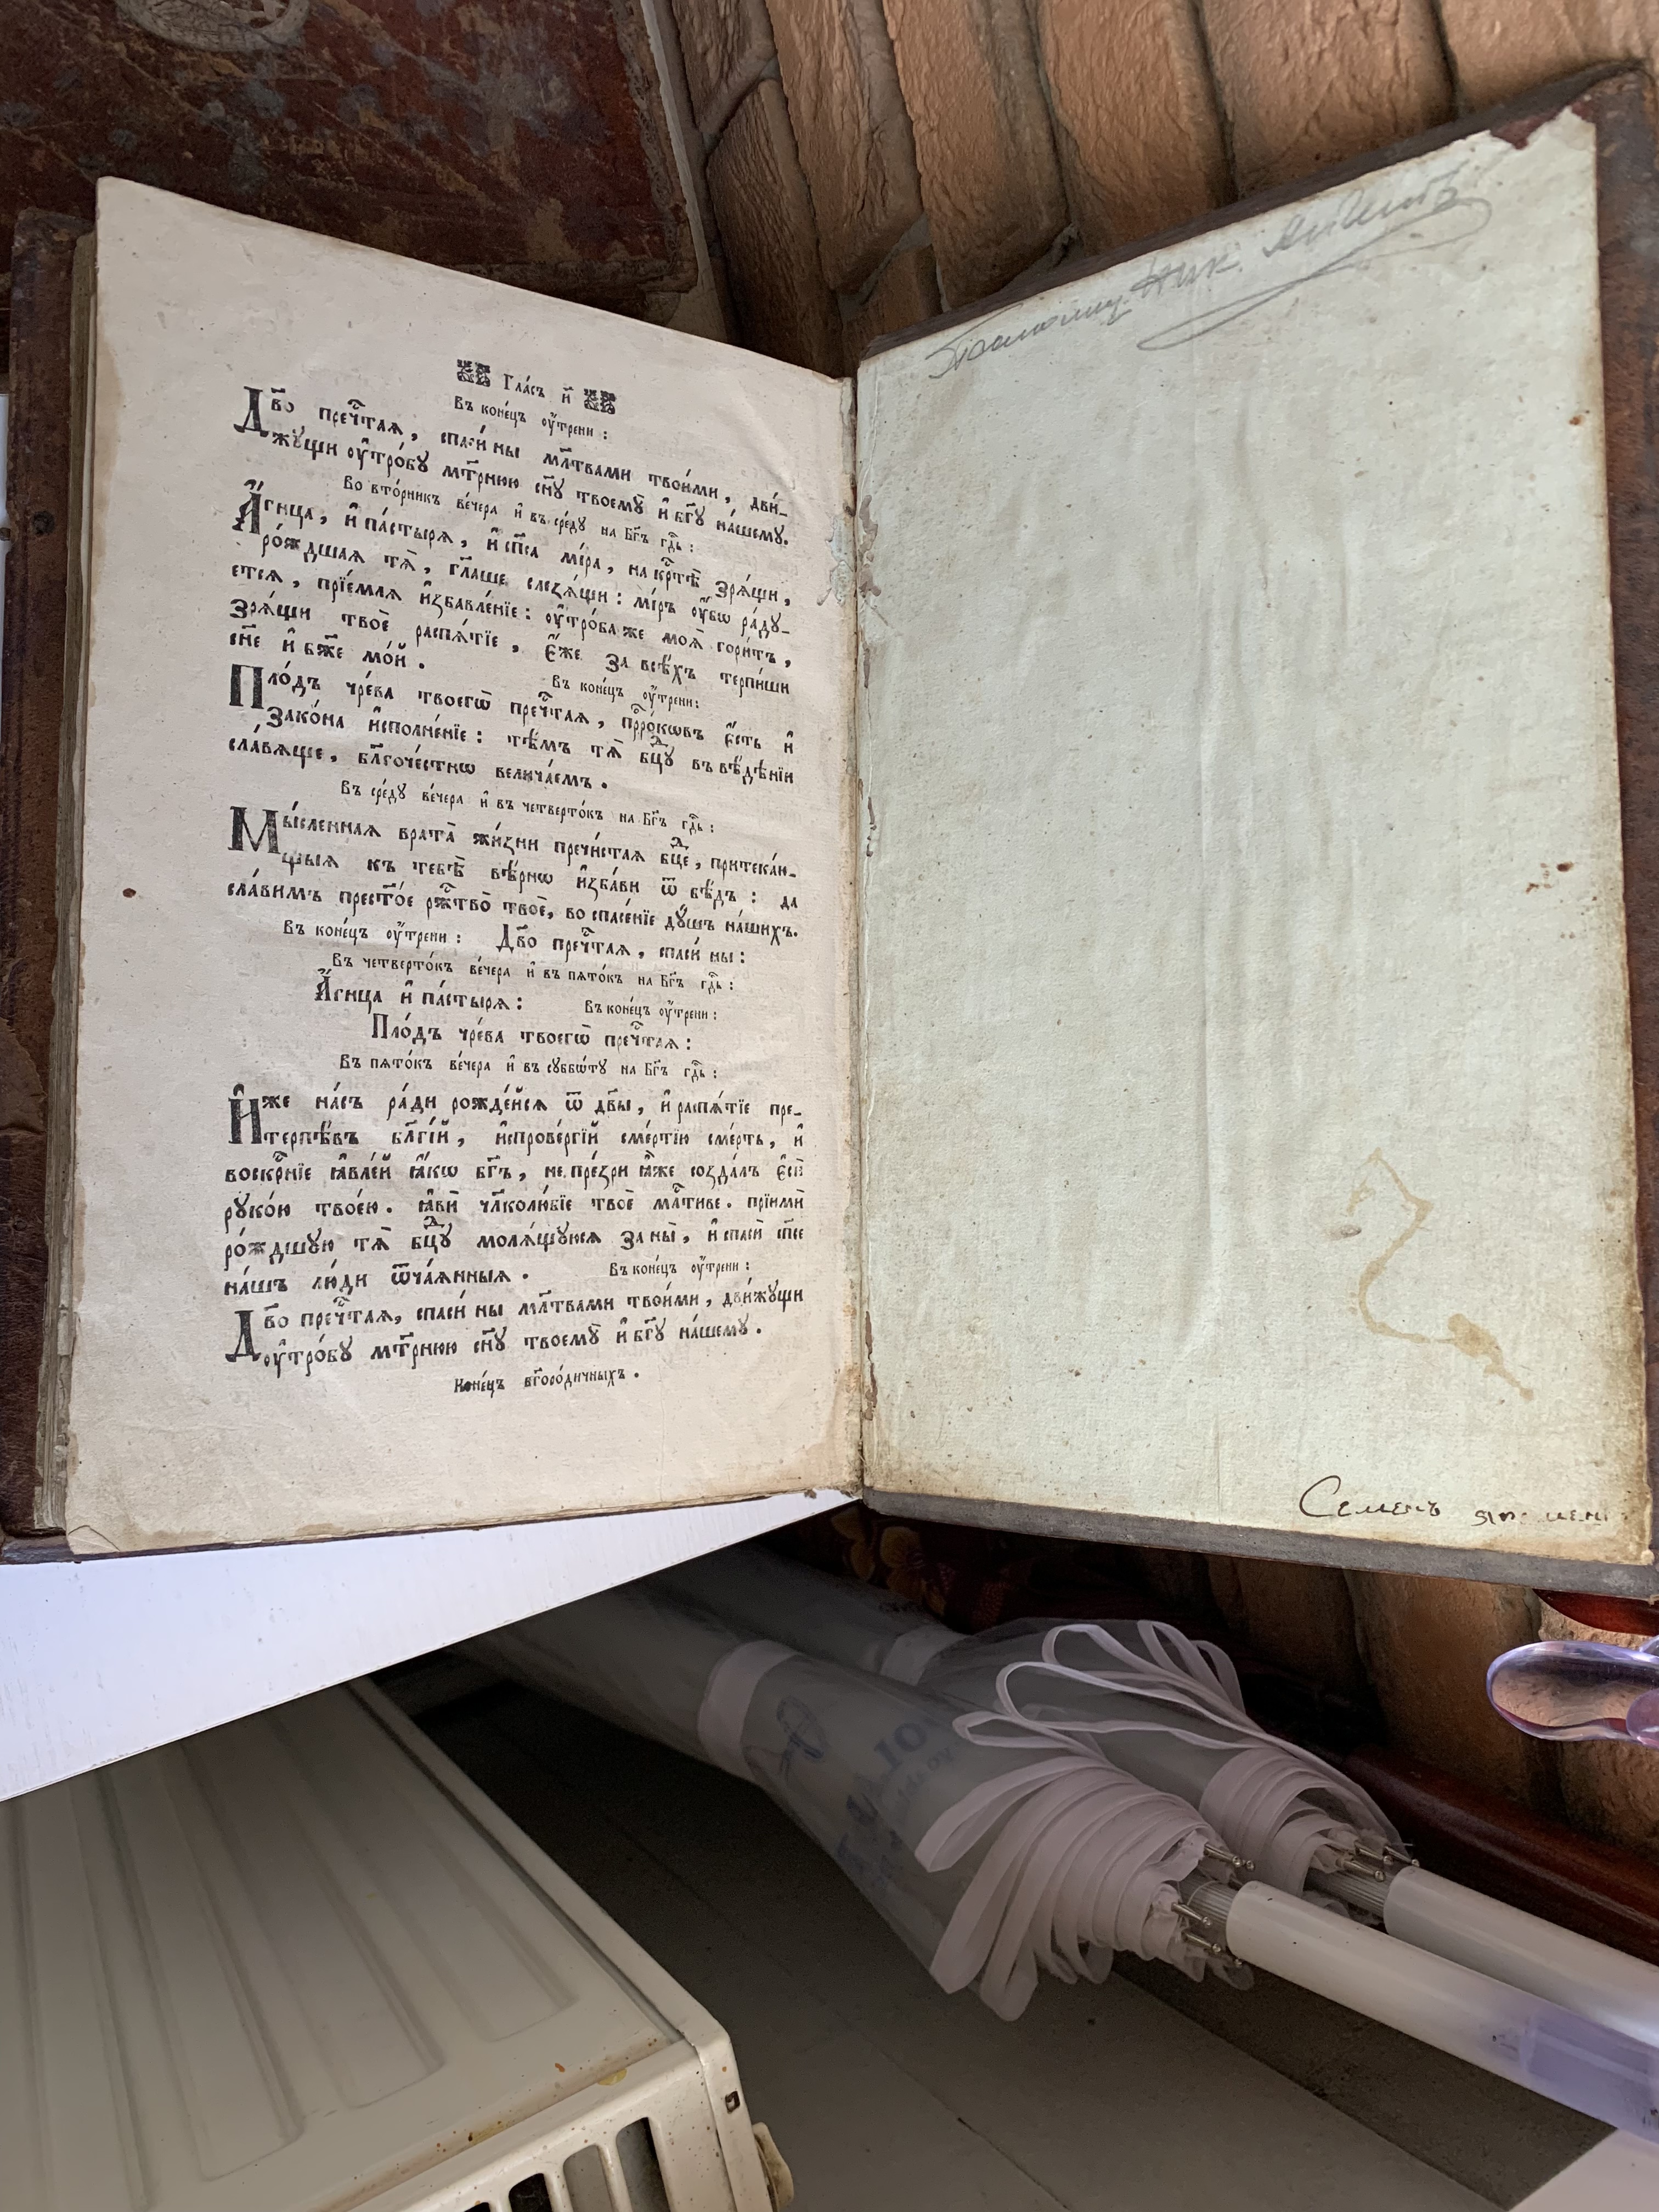 Гла́съ и҃
Въ коне́цъ ѹ҆́трени :
Дв҃о пречⷭ҇таѧ , спаси́ ны мл҃твами твои́ми , дви́-
жꙋщи ѹ҆тро́бꙋ мт҃рнюю сн҃ꙋ твоемꙋ̀ и҆ бг҃ꙋ на́шемꙋ.
Во вто́рникъ ве́чера и҆ въ сре́дꙋ на Бг҃ъ гдⷭ҇ь :
А҆́гнца , и҆ па́стырѧ , и҆ сп҃са мі́ра , на крⷭ҇тѣ̀ зрѧ́щи ,
ро́ждшаѧ тѧ̀ , гл҃аше слезѧ́щи : мі́ръ ѹ҆́бѡ ра́дꙋ-
етсѧ , прїе́млѧ и҆збавле́нїе : ѹ҆тро́ба же моѧ̀ гори́тъ ,
зрѧ́щи твоѐ распѧ́тїе , є҆́же за всѣ́хъ терпи́ши
сн҃е и҆ бж҃е мо́й .
Въ коне́цъ ѹ҆́трени :
Пло́дъ чре́ва твоегѡ̀ пречⷭ҇таѧ , прⷪ҇ро́кѡвъ є҆́сть и҆
зако́на и҆сполне́нїе : тѣ́мъ тѧ̀ бцⷣꙋ въ вѣ́дѣнїи
сла́вѧще , бл҃гоче́стнѡ велича́емъ .
Въ сре́дꙋ ве́чера и҆ въ четверто́къ на Бг҃ъ гдⷭ҇ь :
Мы́сленнаѧ врата̀ жи́зни пречи́стаѧ бцⷣе , притека́ю-
щыѧ къ тебѣ̀ вѣ́рнѡ и҆зба́ви ѿ бѣ́дъ : да
сла́вимъ прест҃о́е ржⷭ҇тво̀ твоѐ, во спасе́нїе дꙋ́шъ на́шихъ.
Въ коне́цъ ѹ҆́трени : Дв҃о пречⷭ҇таѧ , спаси́ ны :
Въ четверто́къ ве́чера и҆ въ пѧто́къ на Бг҃ъ гдⷭ҇ь :
А҆́гнца и҆ па́стырѧ : Въ коне́цъ ѹ҆́трени :
Пло́дъ чре́ва твоегѡ̀ пречⷭ҇таѧ :
Въ пѧто́къ ве́чера и҆ въ сꙋббѡ́тꙋ на Бг҃ъ гдⷭ҇ь :
И҆́же на́съ ра́ди рожде́йсѧ ѿ дв҃ы , и҆ распѧ́тїе пре-
терпѣ́въ бл҃гі́й , и҆спрове́ргїй сме́ртїю сме́рть , и҆
воскрⷭ҇нїе ꙗ҆вле́й ꙗ҆́кѡ бг҃ъ , не пре́зри ꙗ҆̀же созда́лъ є҆сѝ
рꙋко́ю твое́ю . ꙗ҆вѝ чл҃колю́бїе твоѐ млⷭ҇тиве . прїимѝ
ро́ждшꙋю тѧ̀ бцⷣꙋ молѧ́щꙋюсѧ за ны̀ , и҆ спасѝ сп҃се
на́шъ лю́ди ѿча́ѧнныѧ . Въ коне́цъ ѹ҆́трени :
Дв҃о пречⷭ҇таѧ , спаси́ ны мл҃твами твои́ми , дви́жꙋщи
ѹ҆тро́бꙋ мт҃рнюю сн҃ꙋ твоемꙋ̀ и҆ бг҃ꙋ на́шемꙋ .
Коне́цъ бг҃оро́дичныхъ .
Ник.
Семенъ